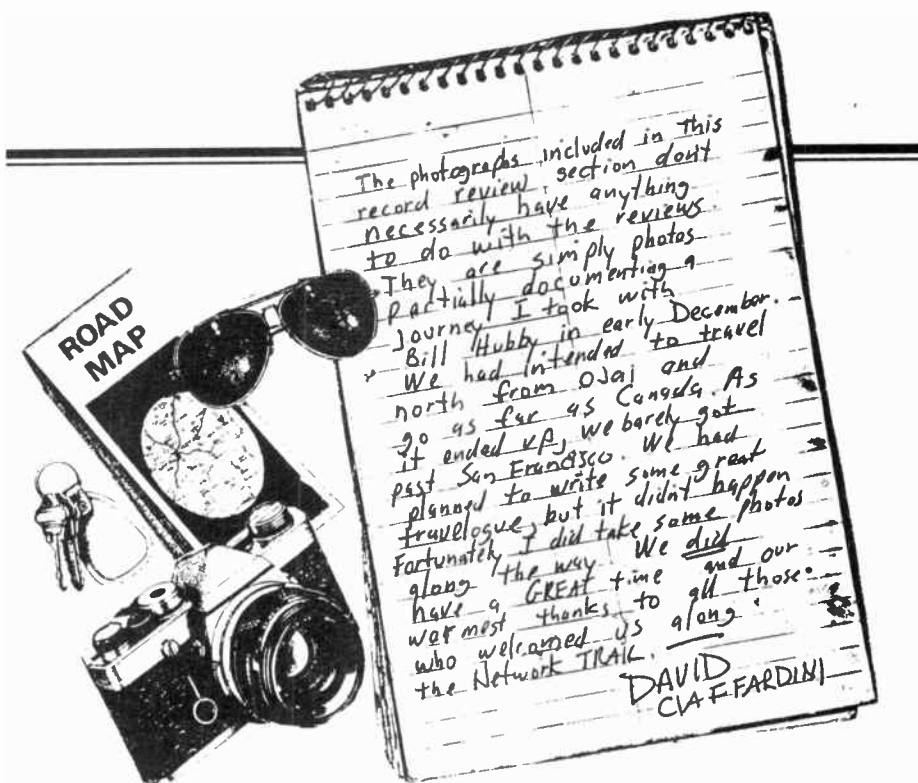 ROAD
MAP
The photographs included in this
record review section don't
necessarily have anything
to do with the reviews.
They are simply photos
partially documenting a
journey I took with
Bill Hubby in early December.
We had intended to travel
north from Ojai and
go as far as Canada. As
it ended up, we barely got
past San Francisco. We had
planned to write some great
travelogue, but it didn't happen
Fortunately I did take some photos
along the way. We did
have a GREAT time and our
warmest thanks to all those
who welcomed us along
the Network TRAIL.
DAVID
CIAFFARDINI